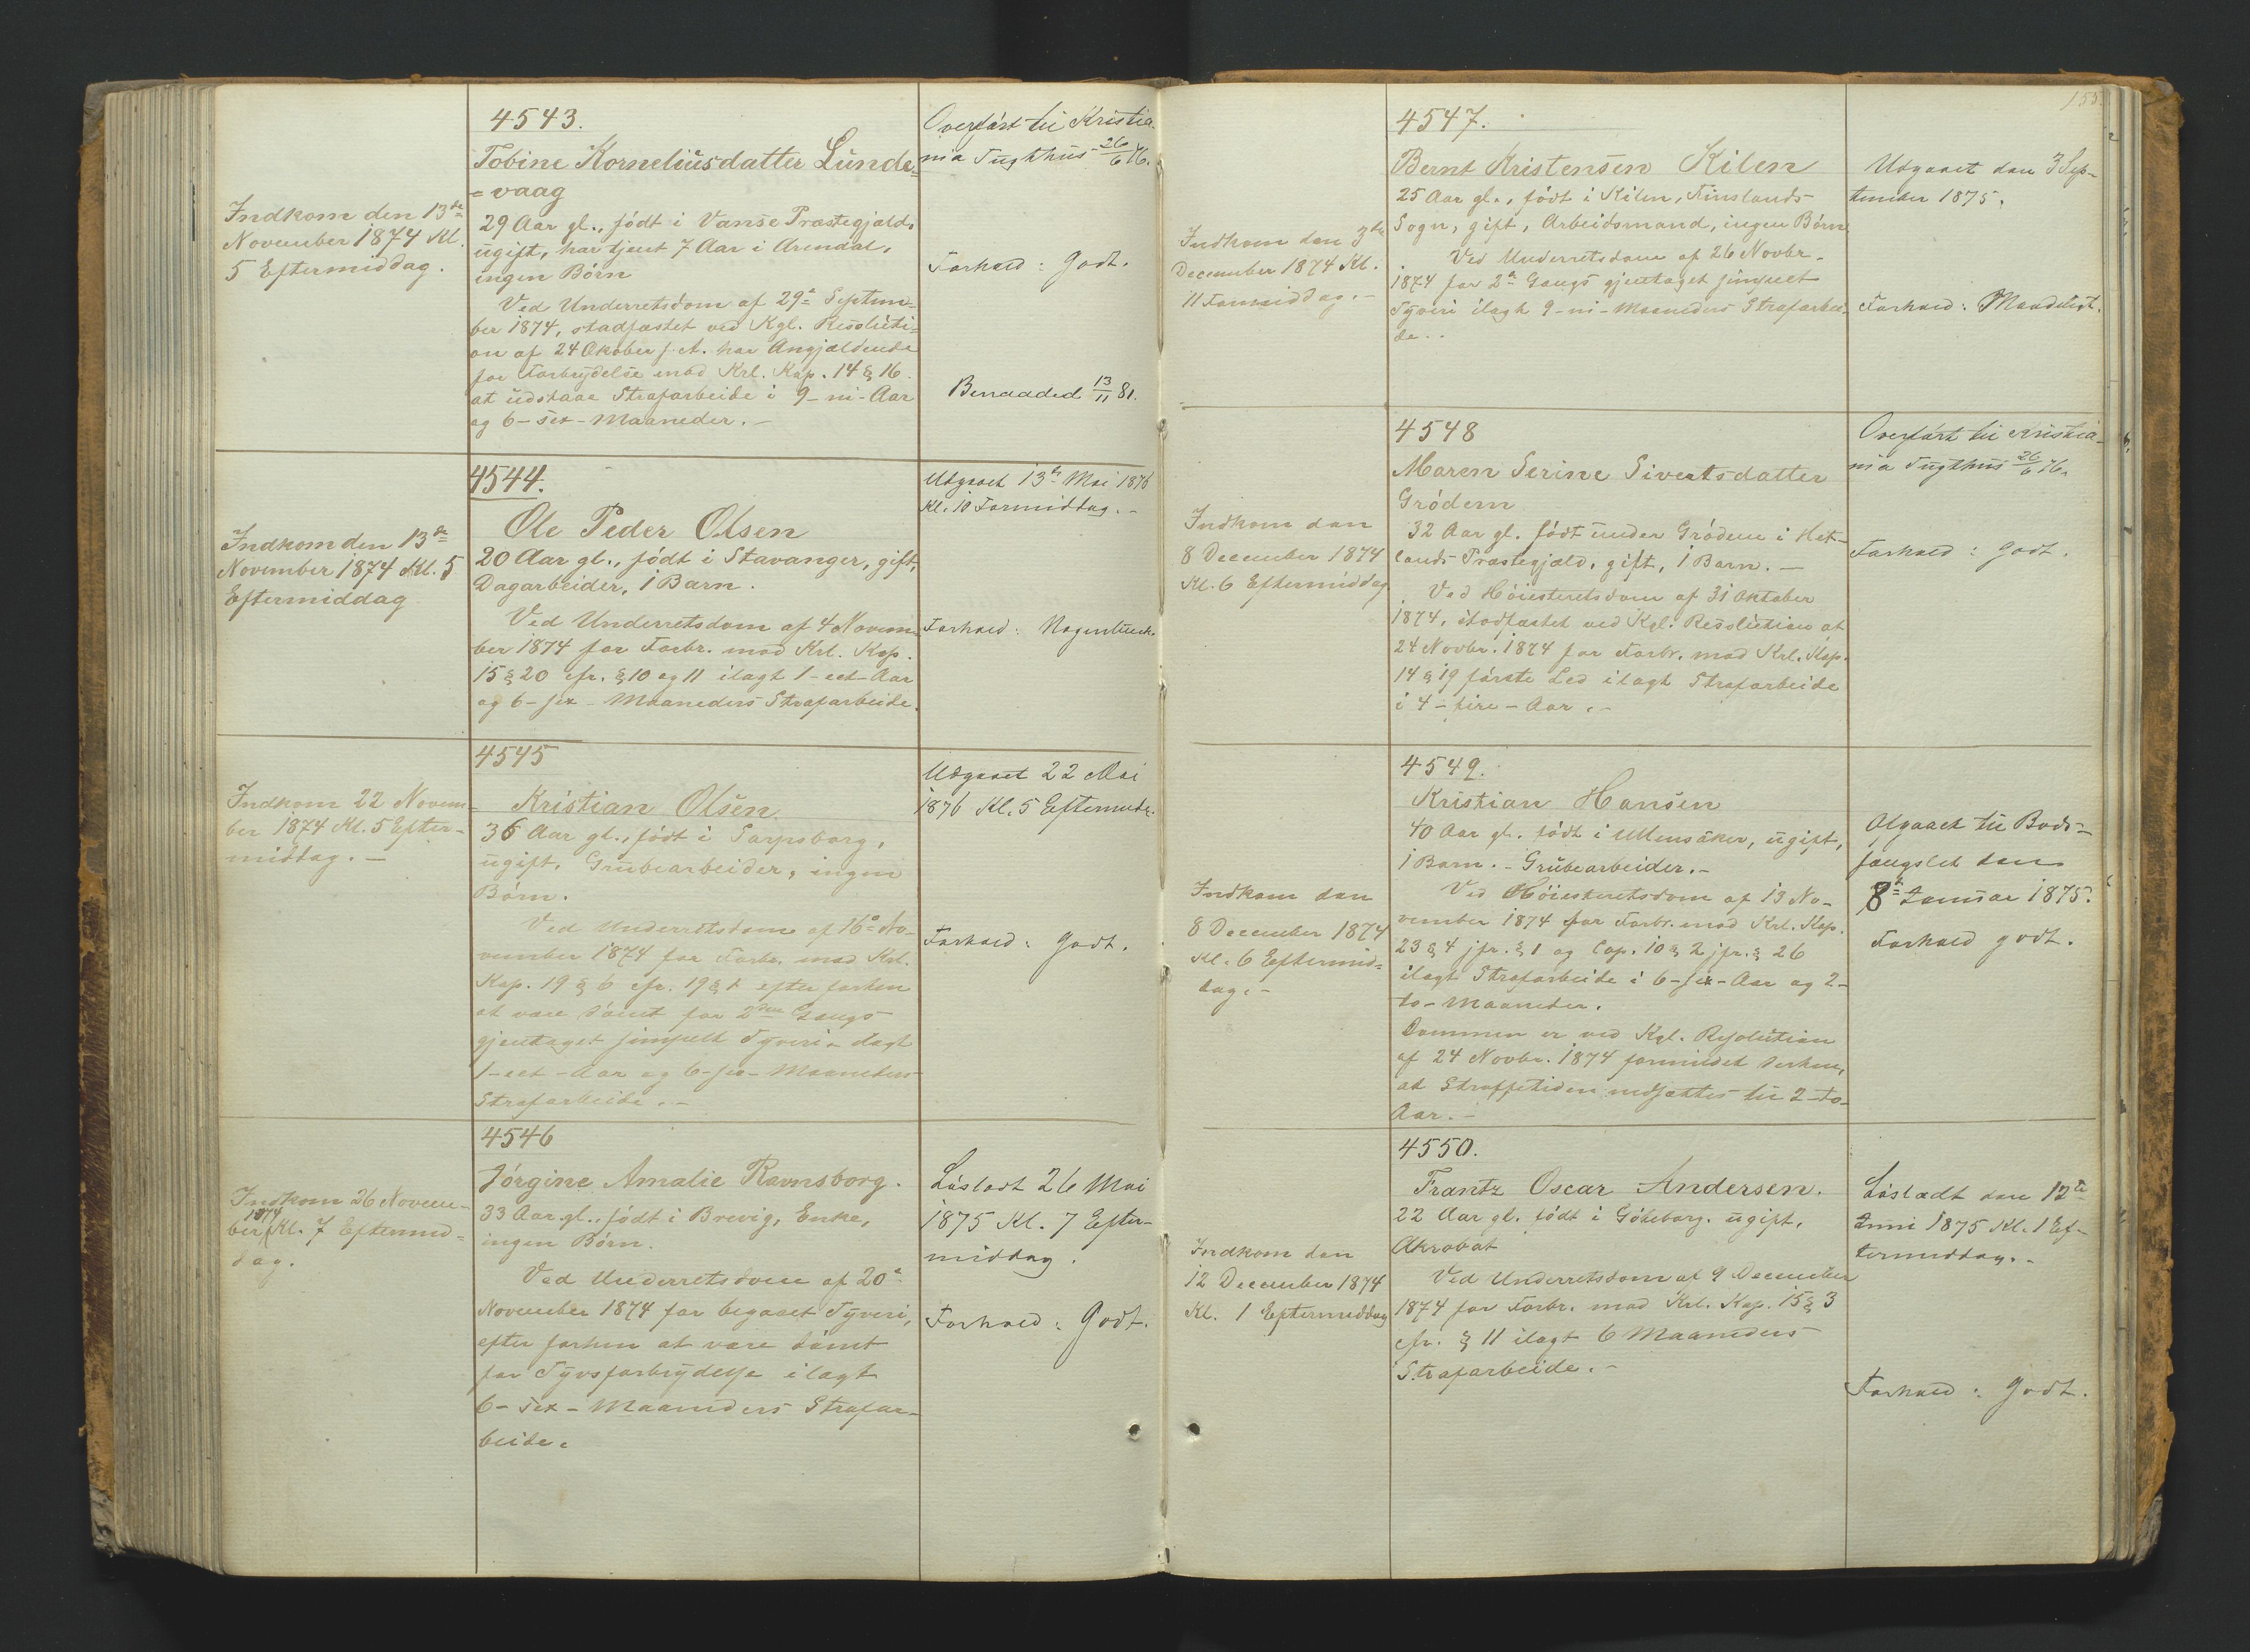 4543.
Tobine Korneliusdatter Lunde-
=vaag
29 Aar gl., födt i Vanse Præstegjæld,
ugift, har tjent 7 Aar i Arendal,
ingen Börn
Ved Underretsdom af 29de Septem-
ber 1874, stadfæstet ved Kgl. Resoluti-
on af 24 Okober s. A. har Angjældende
for Forbrydelse mod Krl. Kap. 14 § 16
at udstaae Strafarbeide i 9-ni-Aar
og 6-sex-Maaneder.-
Indkom den 13de
November 1874 Kl.
5 Eftermiddag.
Overfört til Kristia-
nia Tugthus 26/6 76.
Forhold: Godt.
Benaaded 13/11 81.
4544.
Ole Peder Olsen
20 Aar gl., födt i Stavanger, gift,
Dagarbeider, 1 Barn.
Ved Underretsdom af 4 Novem-
ber 1874 for Forbr. mod Krl. Kap.
15 § 20 cfr. § 10 og 11 ilagt 1-eet-Aar
og 6-sex-Maaneders Strafarbeide.
Indkom den 13de
November 1874 Kl. 5
Eftermiddag
Udgaaet 13de Mai 1876
Kl. 10 Formiddag.-
Forhold:
4545
Kristian Olsen
36 Aar gl., födt i Sarpsborg,
ugift, Grubearbeider, ingen
Börn.
Ved Underretsdom af 16de No-
vember 1874 for Forbr. mod Krl.
Kap. 19 § 6 cfr. 19 § 1 efter forhen
at være dömt for 2den Gangs
gjentaget simpelt Tyveri ilagt
1-eet-Aar og 6-sex-Maaneders
Strafarbeide.-
Indkom 22 Novem-
ber 1874 Kl. 5 Efter-
middag.-
Udgaaet 22 Mai
1876 Kl. 5 Eftermidd.
Forhold: Godt.
4546
Jörgine Amalie Ravnsborg.
33 Aar gl., födt i Brevig, Enke,
ingen Börn.
Ved Underretsdom af 20de
November 1874 for begaaet Tyveri,
efter forhen at være dömt
for Tyvsforbrydelse ilagt
6-sex-Maaneders Strafar-
beide.
Indkom 26 Novem-
ber 1874 Kl. 7 Eftermid=
dag.
Lösladt 26 Mai
1875 Kl. 7 Efter-
middag.
Forhold: Godt.
155.
4547.
Bernt Kristensen Kilen
25 Aar gl., födt i Kilen, Finslands
Sogn, gift, Arbeidsmand, ingen Börn
Ved Underretsdom af 26 Novbr.
1874 for 2de Gangs gjentaget simpelt
Tyveri ilagt 9-ni-Maaneders Strafarbei-
de.
Indkom den 3de
December 1874 Kl.
11 Formiddag.-
Udgaaet den 3 Sep-
tember 1875.
Forhold: Maadeligt.
4548
Maren Serine Sivertsdatter
Grödem
32 Aar gl. födt under Grödem i Het-
lands Præstegjæld, gift, 1 Barn.-
Ved Höiesteretsdom af 31 Oktober
1874, stadfæstet ved Kgl. Resolution af
24 Novbr. 1874 for Forbr. mod Krl. Kap.
14 § 19 förste Led ilagt Strafarbeide
i 4-fire-Aar.-
Indkom den
8 December 1874
Kl. 6 Eftermiddag
Overfört til Kristia-
nia Tugthus 26/6 76.
Forhold: Godt.
4549.
Kristian Hansen
40 Aar gl. födt i Ullensaker, ugift,
1 Barn.- Grubearbeider.-
Ved Höiesteretsdom af 13 No-
vember 1874 for Forbr. mod Krl. Kap.
23 § 4 jfr. § 1 og Cap. 10 § 2 jfr. § 26
ilagt Strafarbeide i 6-sex-Aar og 2-
to-Maaneder.
Dommen er ved Kgl. Resolution
af 24 Novbr. 1874 formildet derhen,
at Straffetiden nedsættes til 2-to-
Aar.-
Indkom den
8 December 1874
Kl. 6 Eftermid=
dag.-
Afgaaet til Bods-
fængslet den
8de Januar 1875.
Forhold godt.
4550.
Frantz Oscar Andersen.
22 Aar gl. födt i Göteborg. ugift,
Akrobat
Ved Underretsdom af 9 December
1874 for Forbr. mod Krl. Kap. 15 § 3
cfr. § 11 ilagt 6 Maaneders
Strafarbeide.-
Indkom den
12 December 1874
Kl. 1 Eftermiddag
Lösladt den 12te
Juni 1875 Kl. 1 Ef-
termiddag.-
Forhold: Godt.